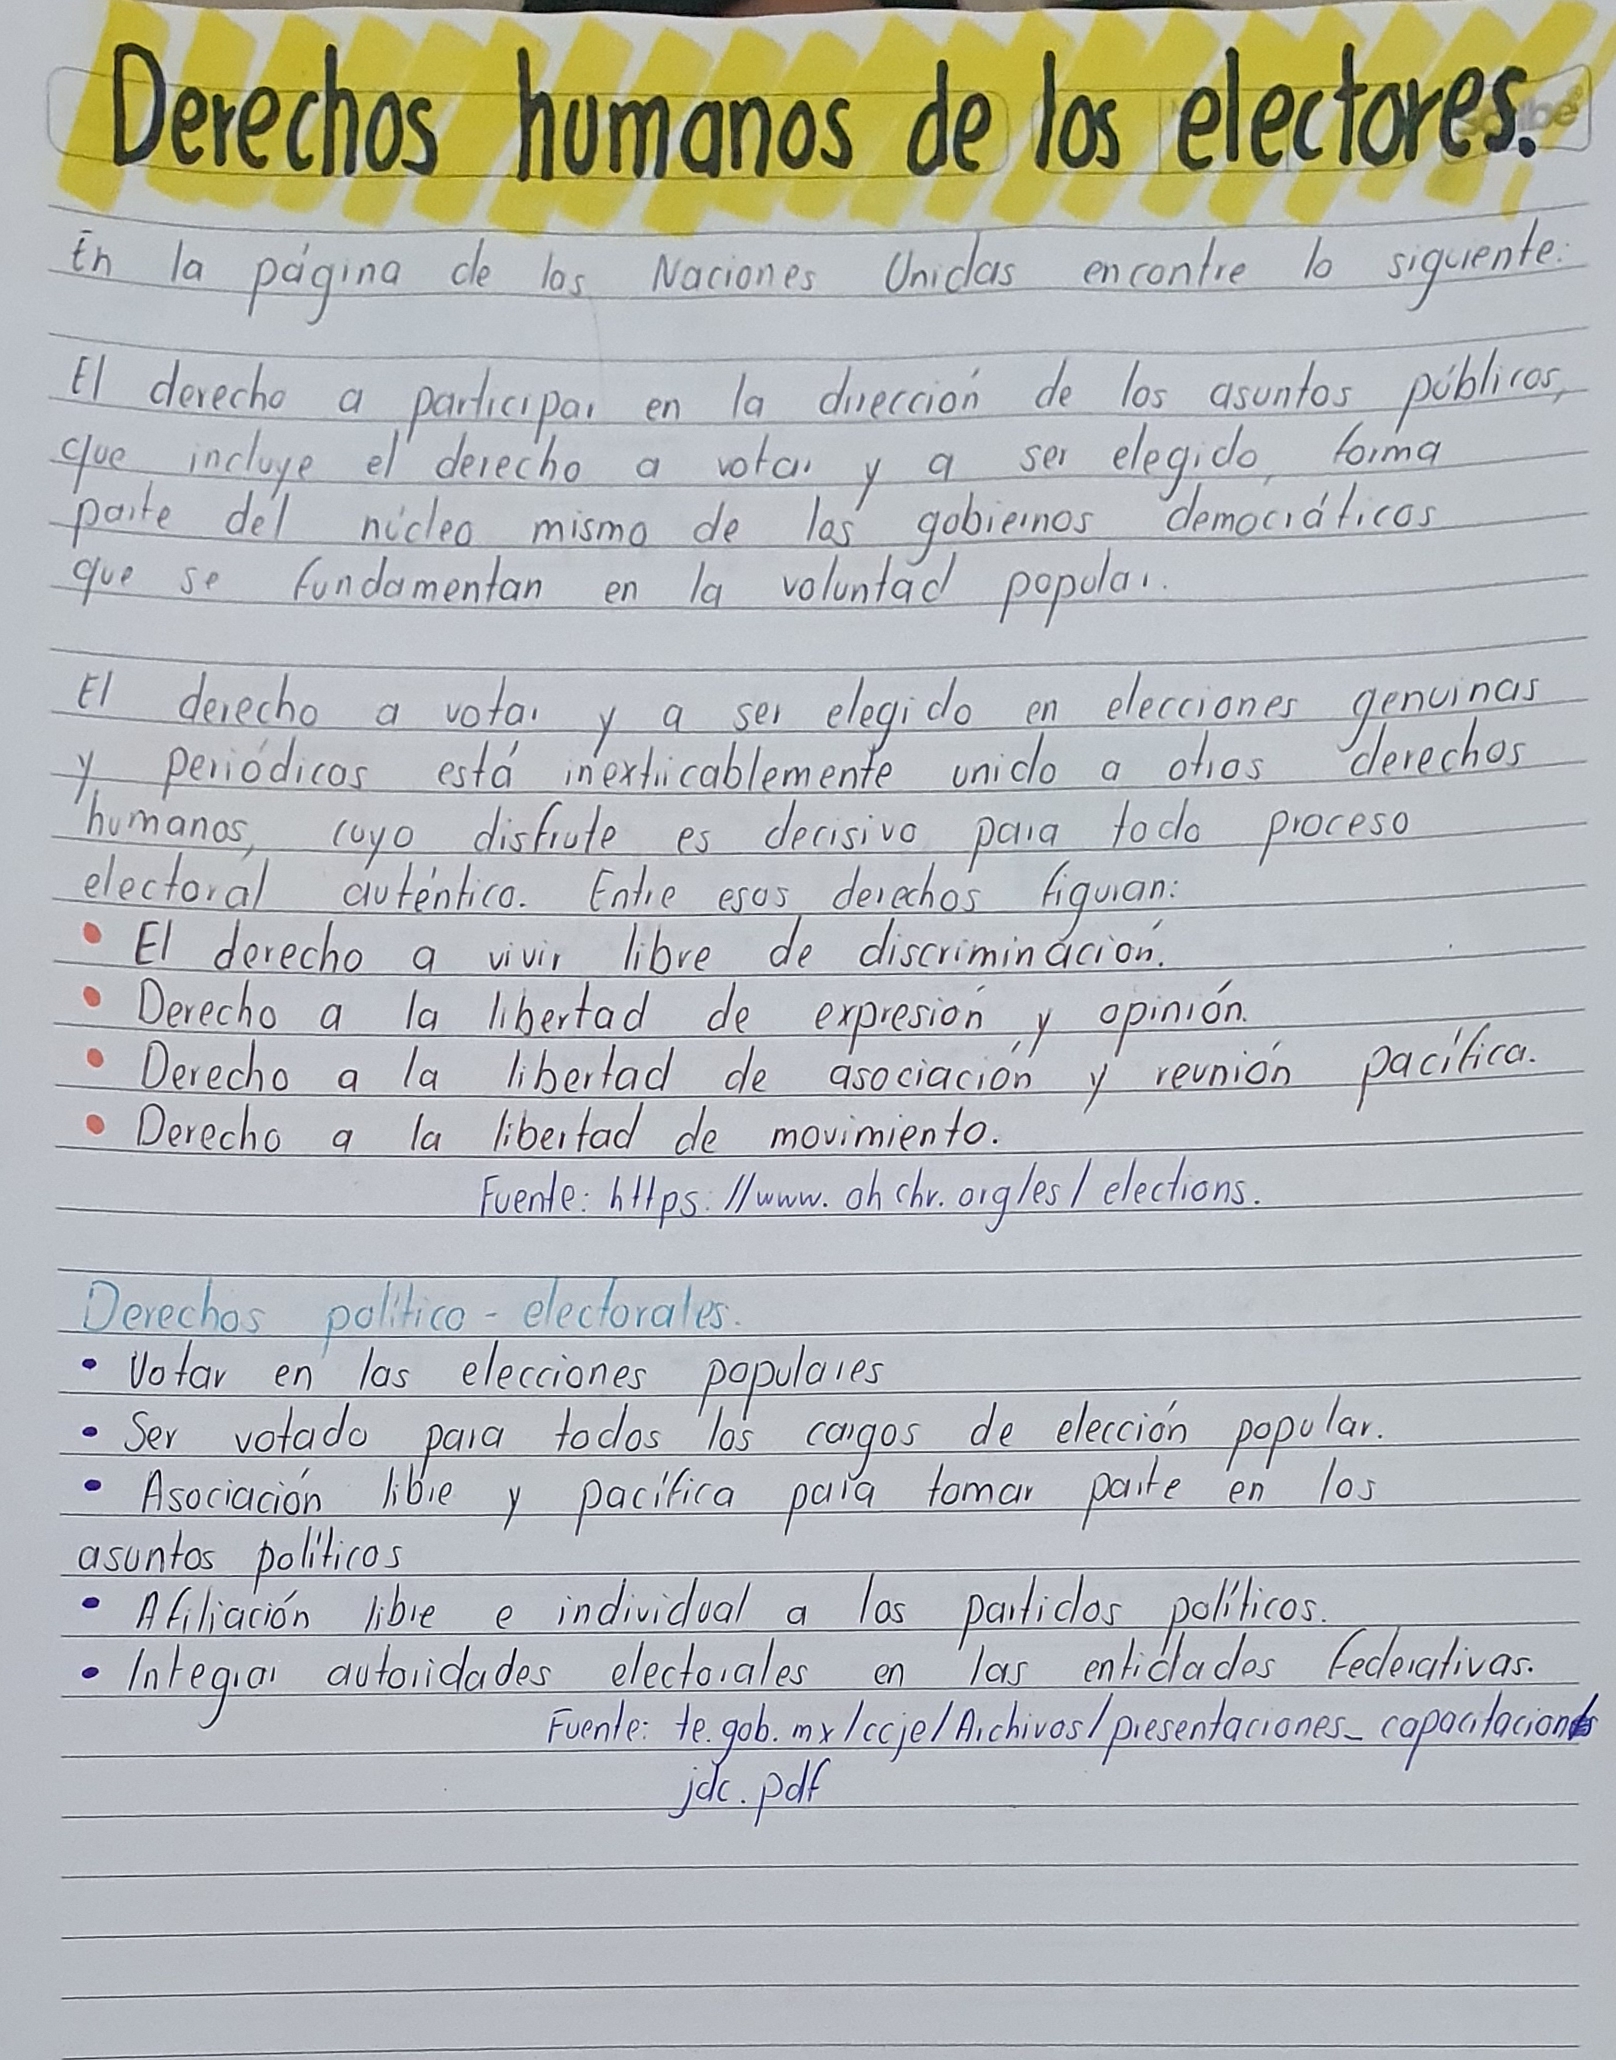 Derechos humanos de los electores.
En la página de las Naciones Unidas encontre lo siguiente:
El derecho a participar en la dirección de los asuntos públicos,
que incluye el derecho a votar y a ser elegido, forma
parte del núcleo mismo de los gobiernos democráticos
que se fundamentan en la voluntad popular.
El derecho a votar y a ser elegido en elecciones genuinas
y periódicas está inextricablemente unido a otros derechos
humanos, cuyo disfrute es decisivo para todo proceso
electoral auténtico. Entre esos derechos figuran:
• El derecho a vivir libre de discriminación.
• Derecho a la libertad de expresión y opinión.
• Derecho a la libertad de asociación y reunión pacífica.
• Derecho a la libertad de movimiento.
Fuente: https://www.ohchr.org/es/elections.
Derechos político-electorales.
• Votar en las elecciones populares
• Ser votado para todos los cargos de elección popular.
• Asociación libre y pacífica para tomar parte en los
asuntos políticos
• Afiliación libre e individual a los partidos políticos.
• Integrar autoridades electorales en las entidades federativas.
Fuente: te.gob.mx/ccje/Archivos/presentaciones_capacitaciones
jdc.pdf